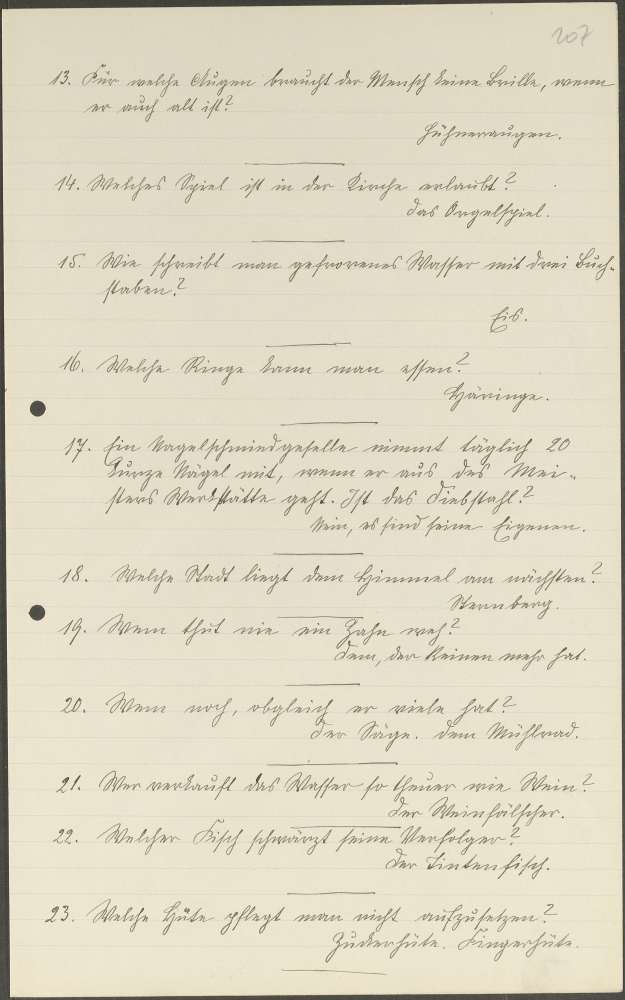 207
13. Für welche Augen braucht der Mensch keine Brille, wenn
er auch alt ist?
Hühneraugen.
14. Welches Spiel ist in der Kirche erlaubt?
Das Orgelspiel.
15. Wie schreibt man gefrorenes Wasser mit drei Buch-
staben?
Eis.
16. Welche Ringe kann man essen?
Häringe.
17. Ein Nagelschmiedgeselle nimmt täglich 20
kurze Nägel mit, wenn er aus des Mei-
sters Werkstätte geht. Ist das Diebstahl?
Nein, es sind seine Eigenen.
18. Welche Stadt liegt dem Himmel am nächsten?
Sternberg.
19. Wem thut nie ein Zahn weh?
Dem, der keinen mehr hat.
20. Wem noch, obgleich er viele hat?
Der Säge. dem Mühlrad.
21. Wer verkauft das Wasser so theuer wie Wein?
Der Weinfälscher.
22. Welcher Fisch schwärzt seine Verfolger?
Der Tintenfisch.
23. Welche Hüte pflegt man nicht aufzusetzen?
Zuckerhüte. Fingerhüte.